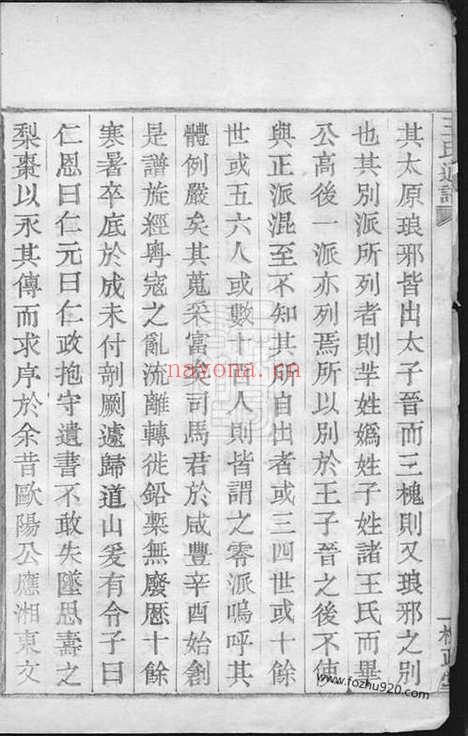 王氏通譜
其太原琅邪皆出太子晉而三槐則又琅邪之別
也其別派所列者則芈姓嬀姓子姓諸王氏而畢
公高後一派亦列焉所以別於王子晉之後不使
與正派混至不知其所自出者或三四世或十餘
世或五六人或數十百人則皆謂之零派嗚呼其
體例嚴矣其蒐采富矣司馬君於咸豐辛酉始創
是譜旋經粤寇之亂流離轉徙鉛槧無廢歷十餘
寒暑卒底於成未付剞劂遽歸道山爰有令子曰
仁恩曰仁元曰仁政抱守遺書不敢失墜思壽之
梨棗以永其傳而求序於余昔歐陽公應湘東文
nayona.cn
www.fozhu920.com